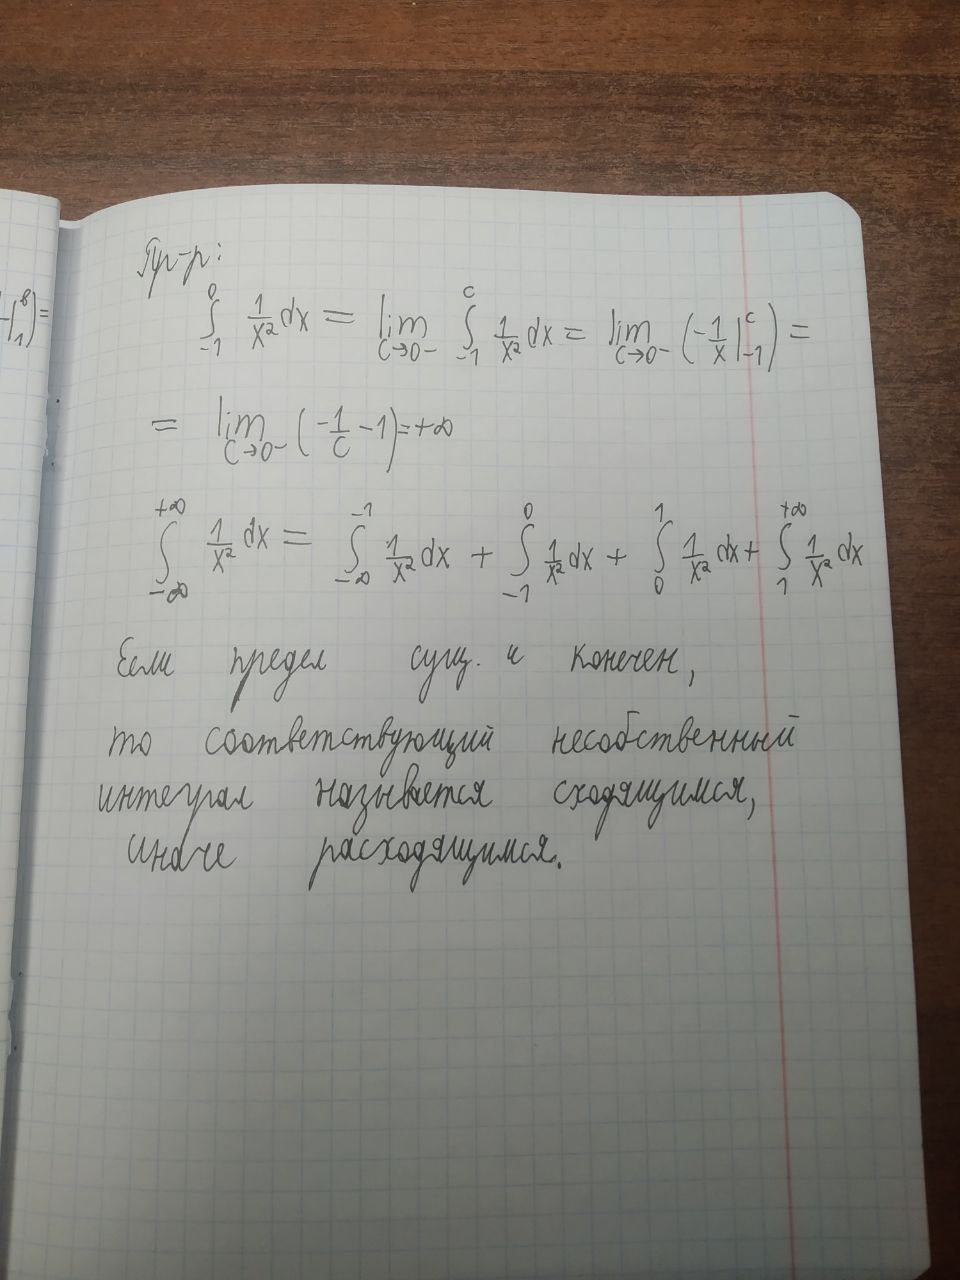 Пр-р:
∫_{-1}^{0} 1/x² dx = lim_{c→0-} ∫_{-1}^{c} 1/x² dx = lim_{c→0-} (-1/x |_{-1}^{c}) =
= lim_{c→0-} (-1/c - 1) = +∞
∫_{-∞}^{+∞} 1/x² dx = ∫_{-∞}^{-1} 1/x² dx + ∫_{-1}^{0} 1/x² dx + ∫_{0}^{1} 1/x² dx + ∫_{1}^{+∞} 1/x² dx
Если предел сущ. и конечен,
то соответствующий несобственный
интеграл называется сходящимся,
иначе расходящимся.